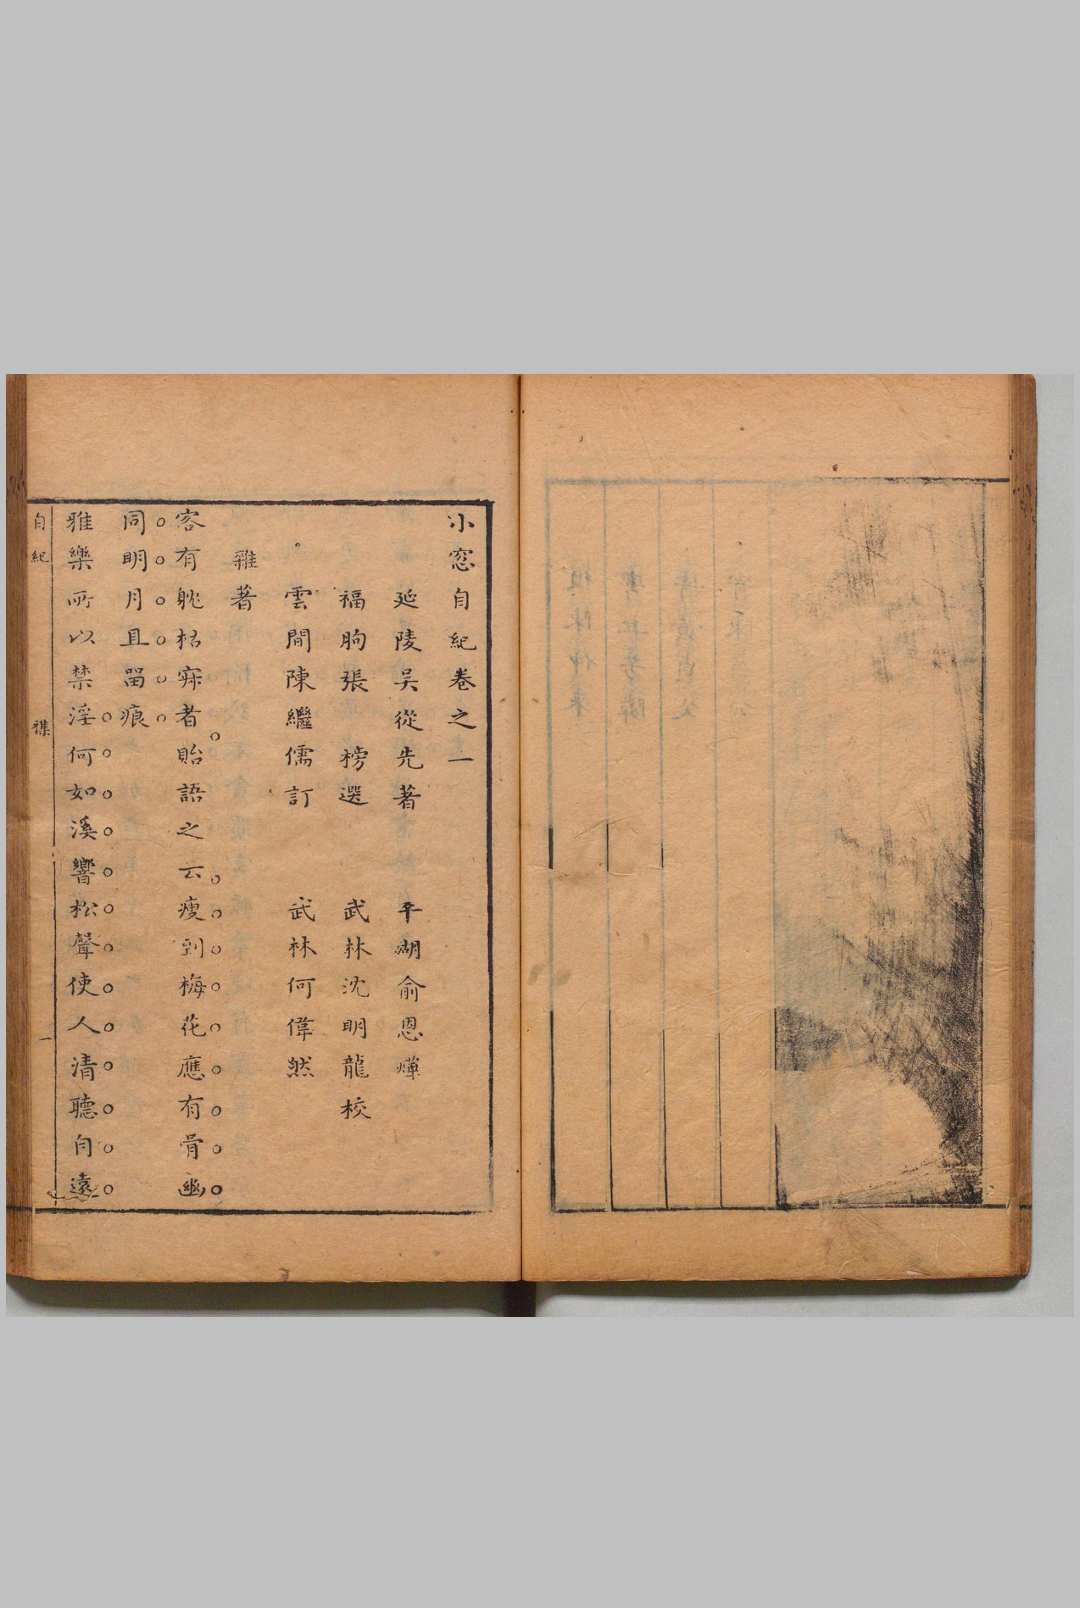 小窓自紀卷之一
延陵吳從先著 平湖俞恩燁
福朐張榜選 武林沈明龍校
雲間陳繼儒訂 武林何偉然
雜著
客有眺枯寐者貽語之云瘦到梅花應有骨幽
同明月且畱痕
雅樂所以禁淫何如溪響松聲使人清聽自遠
自紀 襍 一